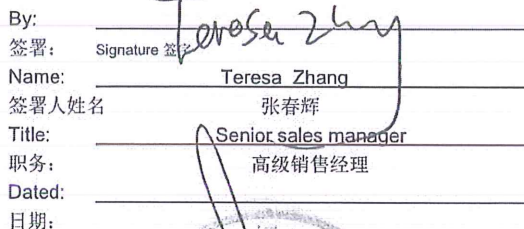 By: Teresa Zhang
签署： Signature 签字
Name: Teresa Zhang
签署人姓名 张春辉
Title: Senior sales manager
职务： 高级销售经理
Dated:
日期：